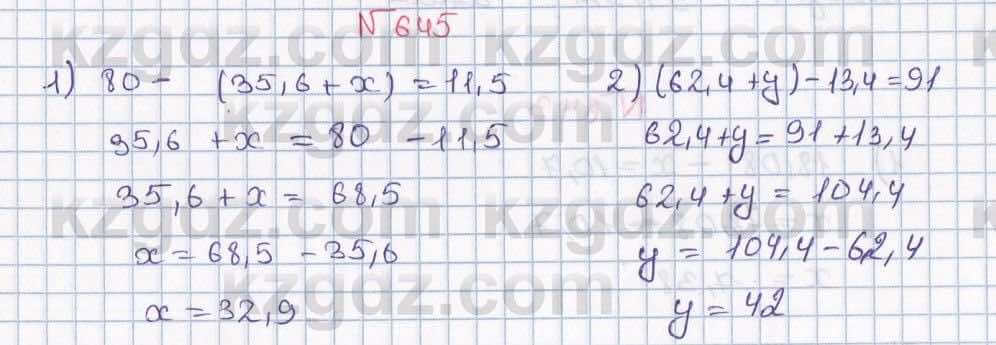 N 645
1) 80 - (35,6 + x) = 11,5
95,6 + x = 80 - 11,5
35,6 + x = 68,5
x = 68,5 - 35,6
x = 32,9
2) (62,4 + y) - 13,4 = 91
62,4 + y = 91 + 13,4
62,4 + y = 104,4
y = 104,4 - 62,4
y = 42
kzgdz.com